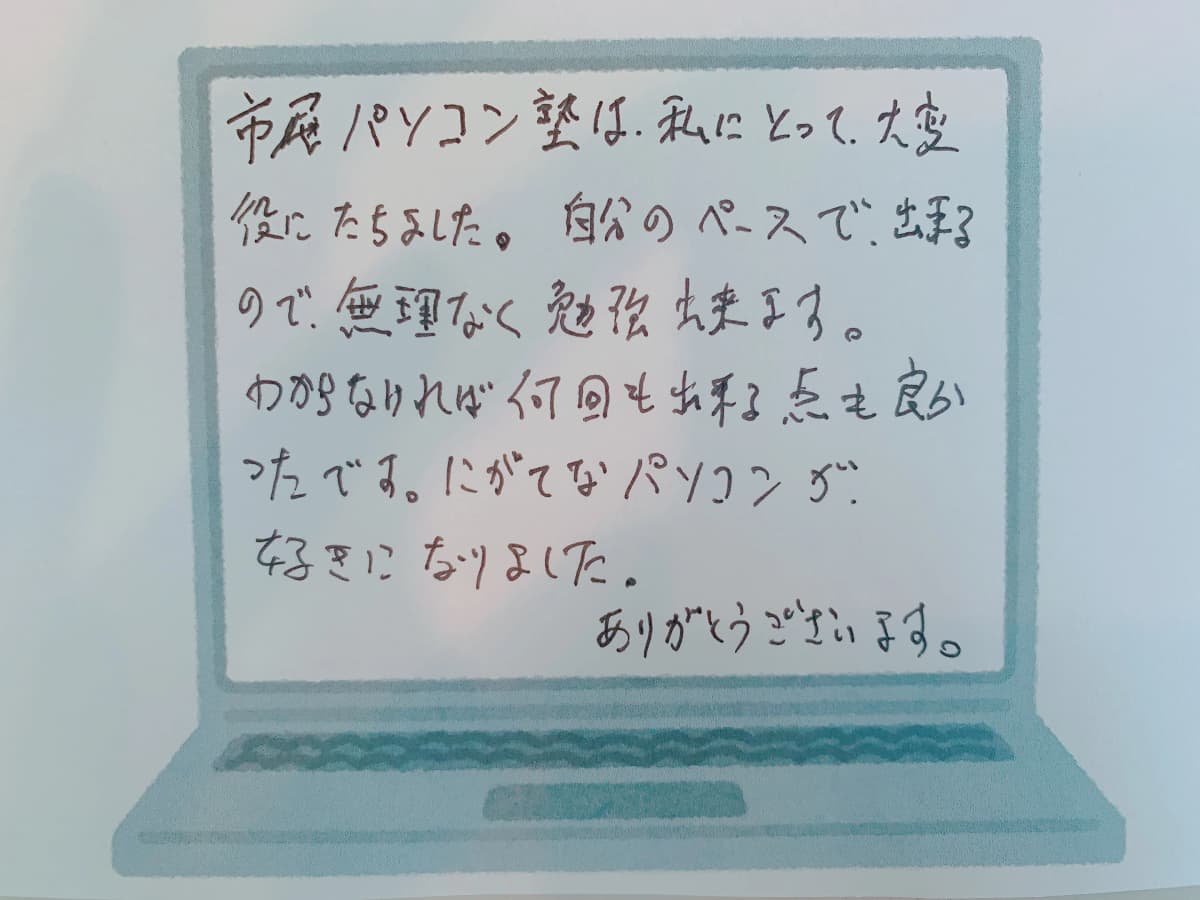 市尾パソコン塾は、私にとって、大変
役にたちました。自分のペースで、出来る
ので、無理なく勉強出来ます。
わからなければ何回も出来る点も良か
ったです。にがてなパソコンが、
好きになりました。
ありがとうございます。